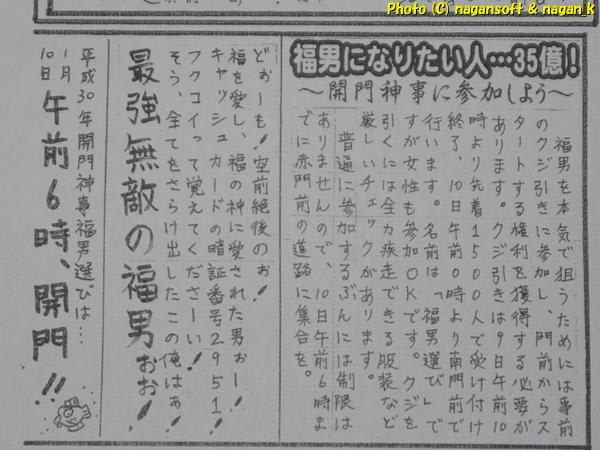 Photo (C) nagansoff & nagan_k
福男になりたい人…35億!
～開門神事に参加しよう～
福男を本気で狙うためには事前
のクジ引きに参加し、門前からス
タートする権利を獲得する必要が
あります。クジ引きは9日午前10
時より先着1500人で受け付け
終了、10日午前0時より南門前で
行います。名前は「福男選び」で
すが女性も参加OKです。クジを
引くには全力疾走できる服装など
厳しいチェックがあります。
普通に参加するぶんには制限は
ありませんので、10日午前6時ま
でに赤門前の道路に集合を。
どぉーも!空前絶後のぉ!
福を愛し、福の神に愛された男ぉー!
キャッシュカードの暗証番号2951!
フクコイって覚えてくださーい!
そう、全てをさらけ出したこの俺はぁ!
最強無敵の福男ぉぉ!
平成30年開門神事福男選びは…
1月10日午前6時、開門!!